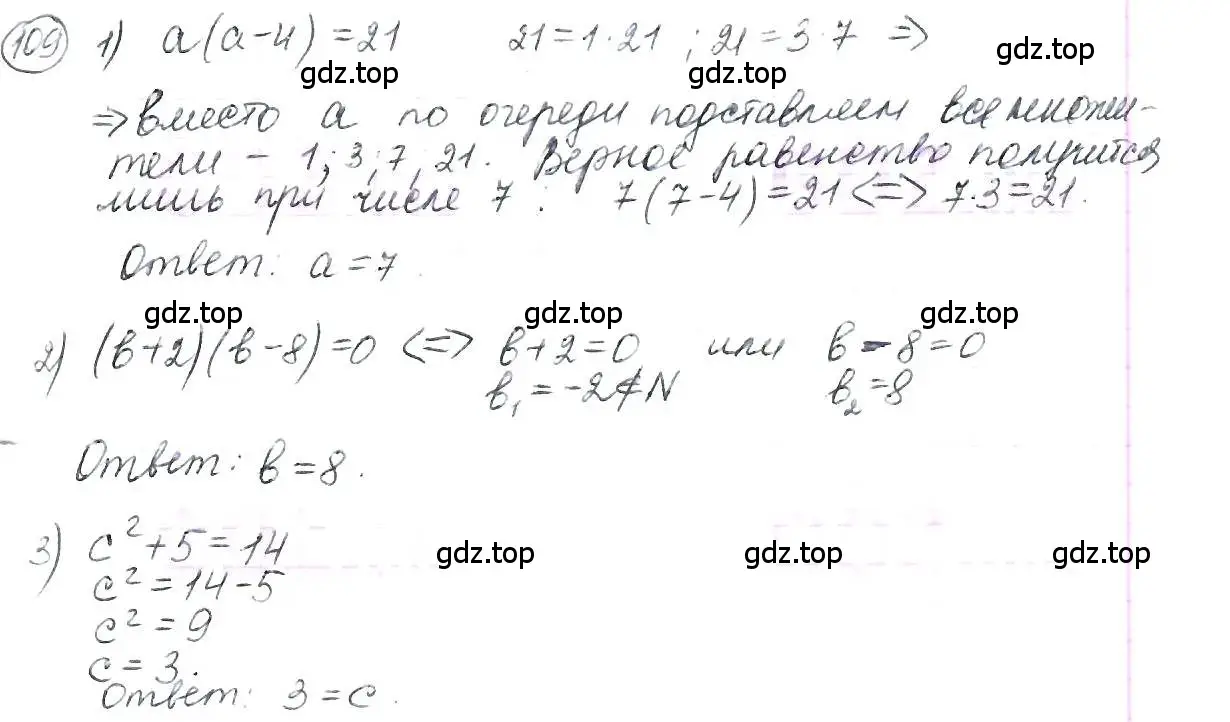 109 1) a(a-4)=21 21=1·21 ; 21=3·7 ⇒
gdz.top gdz.top gdz.top
⇒ вместо a по очереди подставляем все множи-
тели - 1; 3; 7, 21. Верное равенство получится
лишь при числе 7 : 7(7-4)=21 <=> 7·3=21.
Ответ: a=7.
gdz.top gdz.top gdz.top
2) (b+2)(b-8)=0 <=> b+2=0 или b-8=0
b₁=-2∉N b₂=8
Ответ: b=8.
3) c²+5=14
gdz.top gdz.top gdz.top
c²=14-5
c²=9
c=3.
Ответ: 3=c.